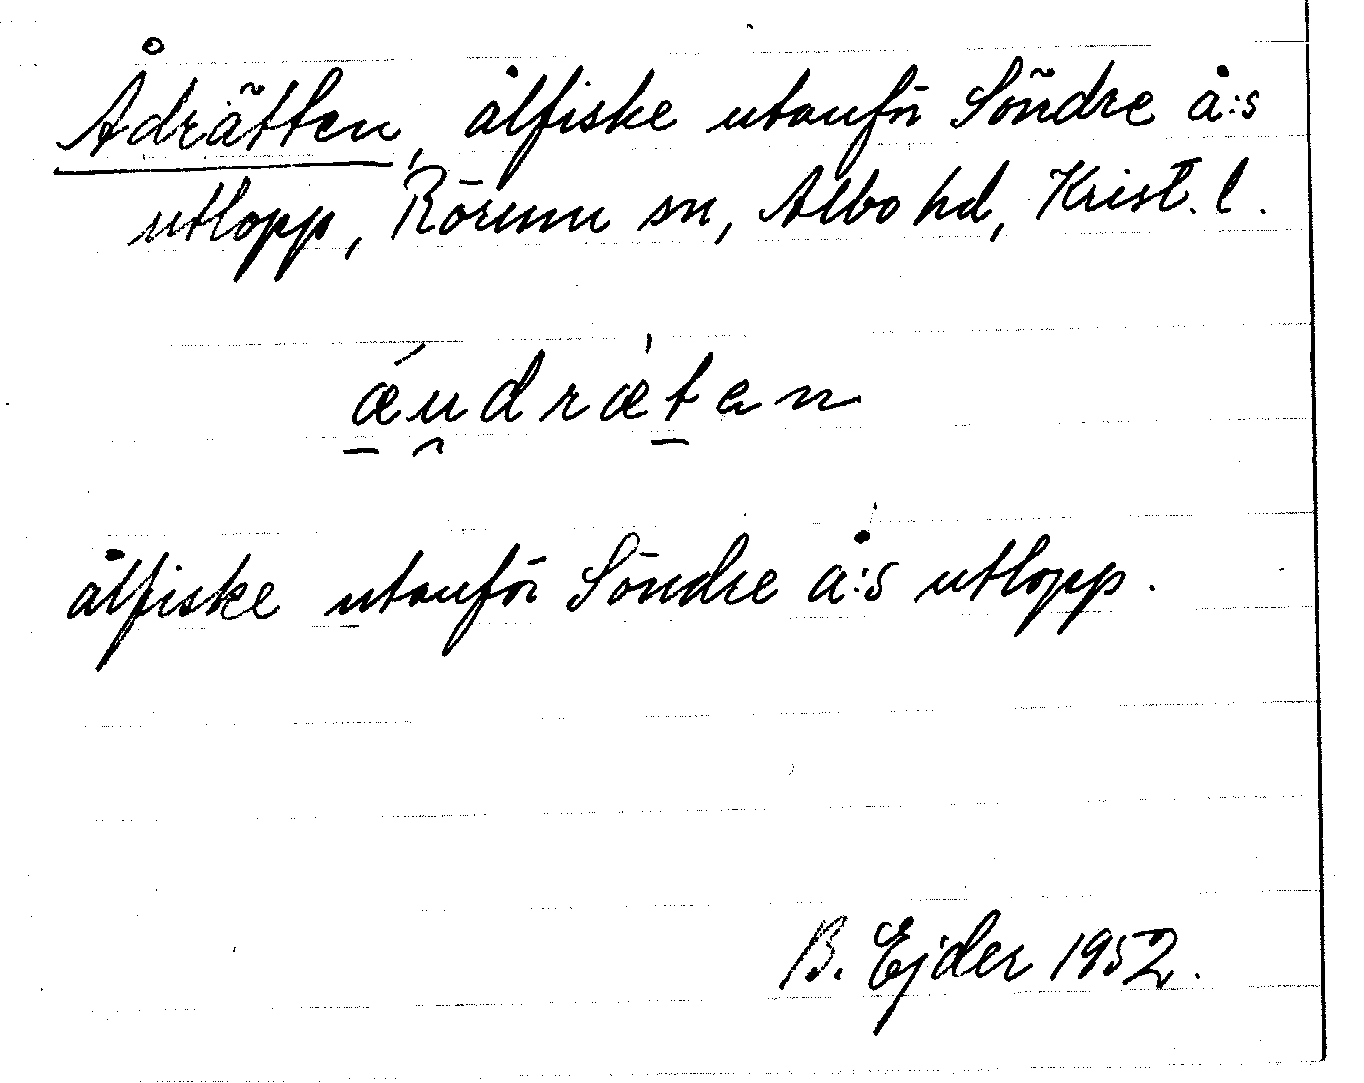 Ådrätten, ålfiske utanför Söndre å:s
utlopp, Rörum sn, Albo hd, Krist. l.
ǽ̠u̯dræ̀t̠ən
ålfiske utanför Söndre å:s utlopp.
B. Ejder 1952.